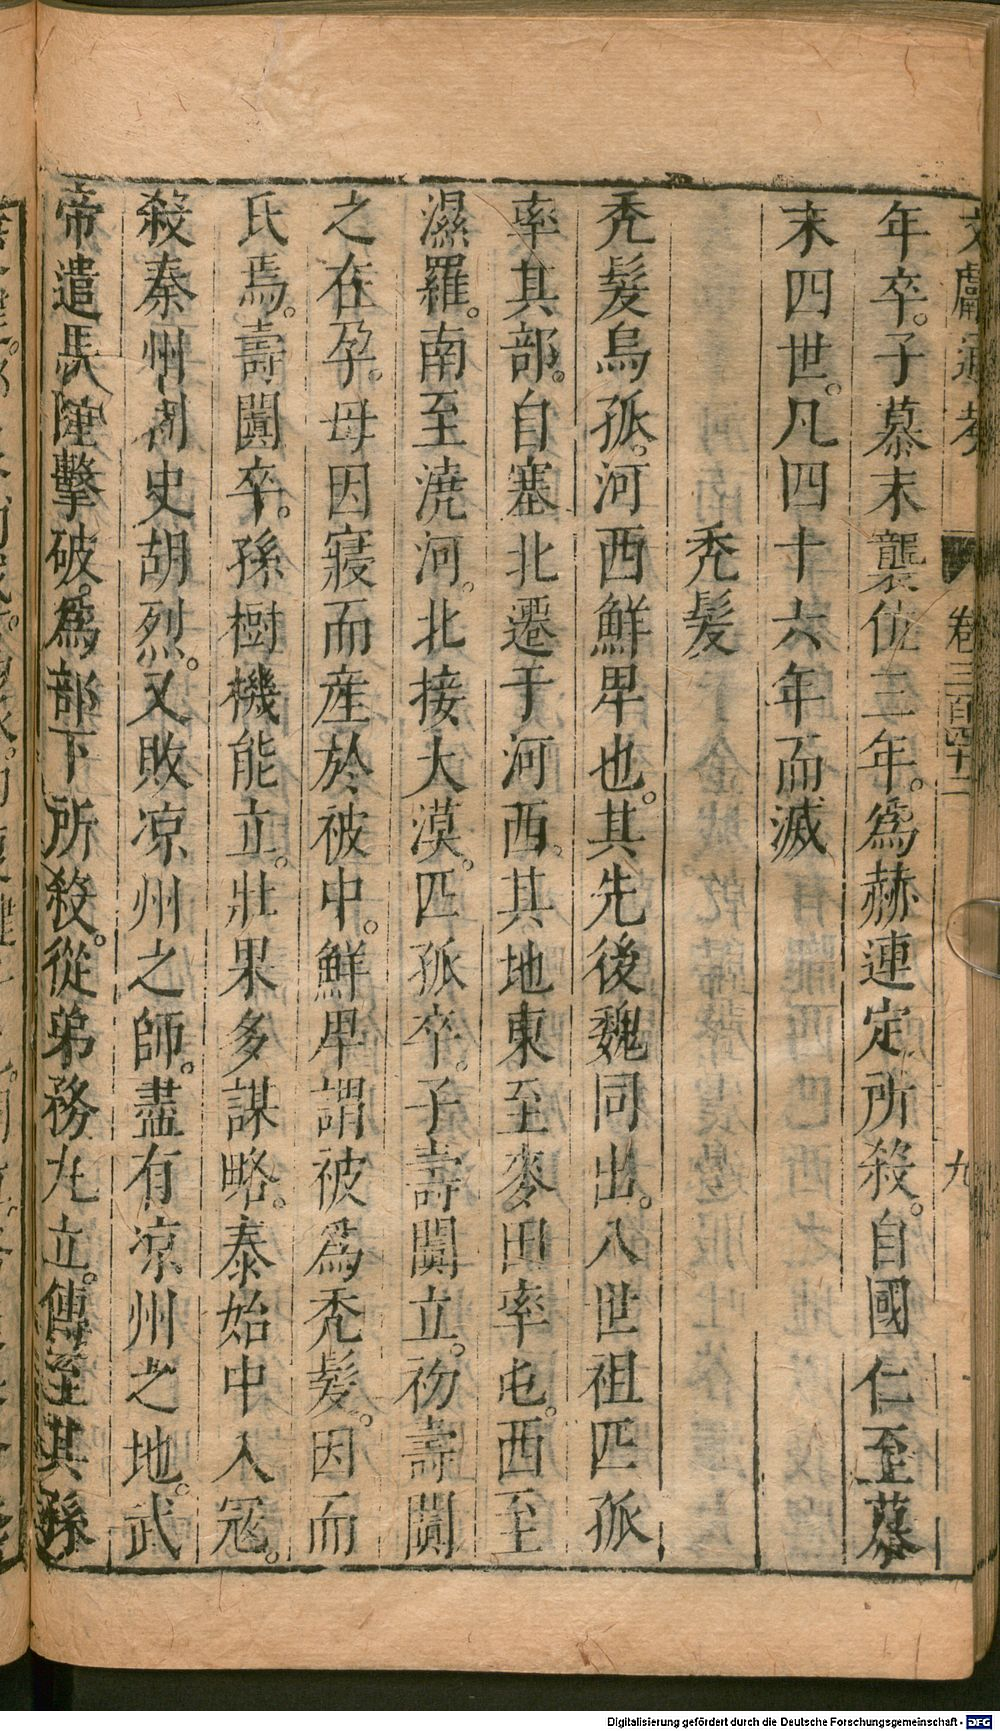 文獻通考 卷三百四十二 九
年卒。子慕末襲位三年。爲赫連定所殺。自國仁至慕
末四世。凡四十六年而滅
秃髮
秃髮烏孤。河西鮮卑也。其先後魏同出。八世祖匹孤
率其部。自塞北遷于河西。其地東至麥田率屯。西至
濕羅。南至澆河。北接大漠。匹孤卒。子壽闐立。初壽闐
之在孕。母因寢而産於被中。鮮卑謂被爲秃髮。因而
氏焉。壽闐卒。孫樹機能立。壯果多謀略。泰始中入冦。
殺秦州刺史胡烈。又敗凉州之師。盡有凉州之地。武
帝遣馬隆擊破。爲部下所殺。從弟務九立。傳至其孫
Digitalisierung gefördert durch die Deutsche Forschungsgemeinschaft - DFG